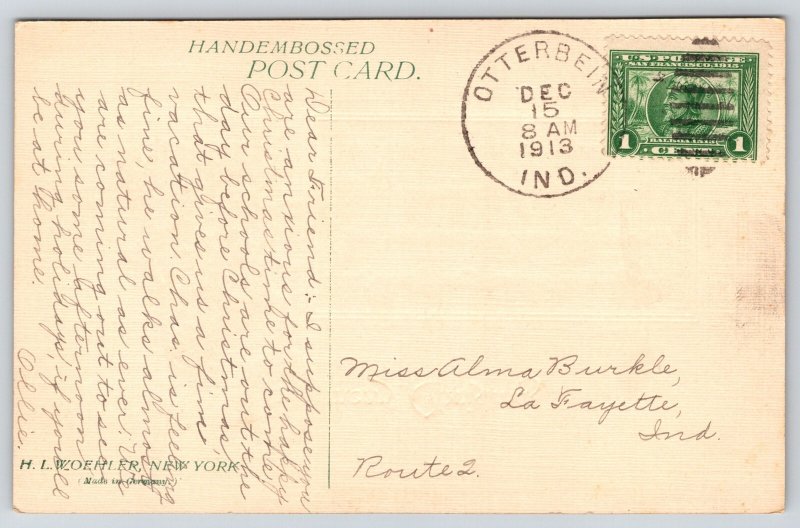 HANDEMBOSSED
POST CARD.
OTTERBEIN
DEC
15
8 AM
1913
IND.
U.S. POSTAGE
SAN FRANCISCO 1915
1 CENT 1
Dear Friend: I suppose you
are anxious for the happy
Christmas time to come,
Our schools are out the
day before Christmas,
that gives us a fine
vacation. Chas. is feeling
fine, he walks almost
as natural as ever. We
are coming out to see
you some afternoon
during holidays, if you'll
be at home.
Ollie.
Miss Alma Burkle,
La Fayette,
Ind.
Route 2.
H. L. WOEHLER, NEW YORK
(Made in Germany)